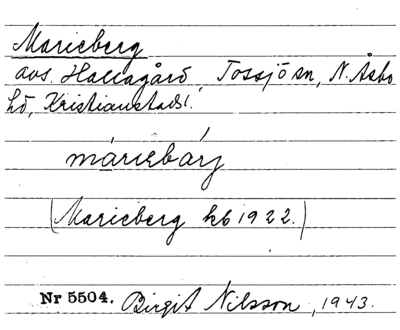 Marieberg
avs. Hallagård, Tossjö sn, N. Åsbo
hd, Kristianstads l.
máriebárj
(Marieberg kb 1922.)
Nr 5504. Birgit Nilsson, 1943.